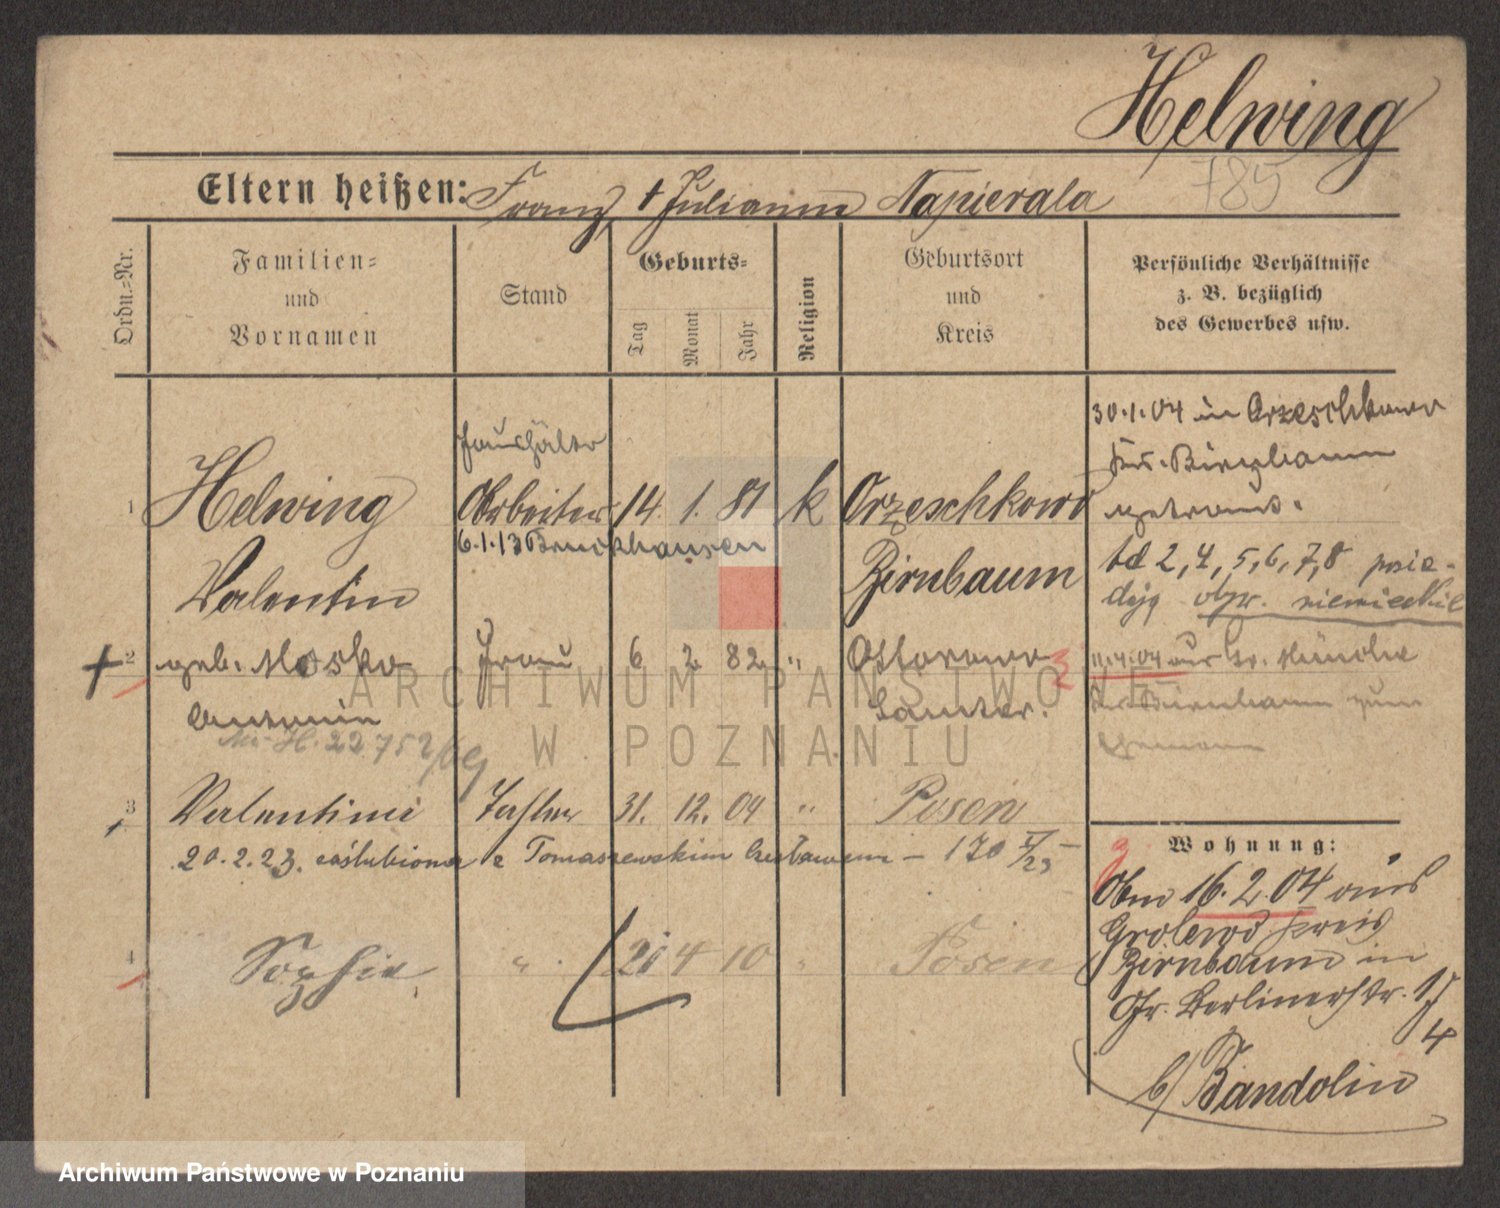 Helwing
785
Eltern heißen: Franz + Julianna Napierala
Ordn.-Nr.
Familien-
und
Vornamen
Stand
Geburts-
Tag
Monat
Jahr
Religion
Geburtsort
und
Kreis
Persönliche Verhältnisse
z. B. bezüglich
des Gewerbes usw.
Haushälter
1 Helwing Arbeiter 14. 1. 81 k Orzeschkowo
6.1.13 Bruckhausen
Valentin
Birnbaum
30.1.04 in Orzeschkowo
Krs. Birnbaum
getraut.
ad 2, 4, 5, 6, 7, 8 posia-
dają obyw. niemieckie
2 geb. Mosko Frau 6 2 82 "
Antonie
Samter.
11.4.04 aus
Kr. Birnbaum zum
Ehemann
H. 22752/
3 Valentine Tochter 31. 12. 04 " Posen
20.2.23. zaślubiona z Tomaszewskim – 170 I/23 –
4 Sophie " 4 10 " Posen
Wohnung:
Abm 16.2.04 aus
Grolewo Kreis
Birnbaum in
Gr. Berlinerstr. 17
4
b/ Bandolin
ARCHIWUM PAŃSTWOWE
W POZNANIU
Archiwum Państwowe w Poznaniu